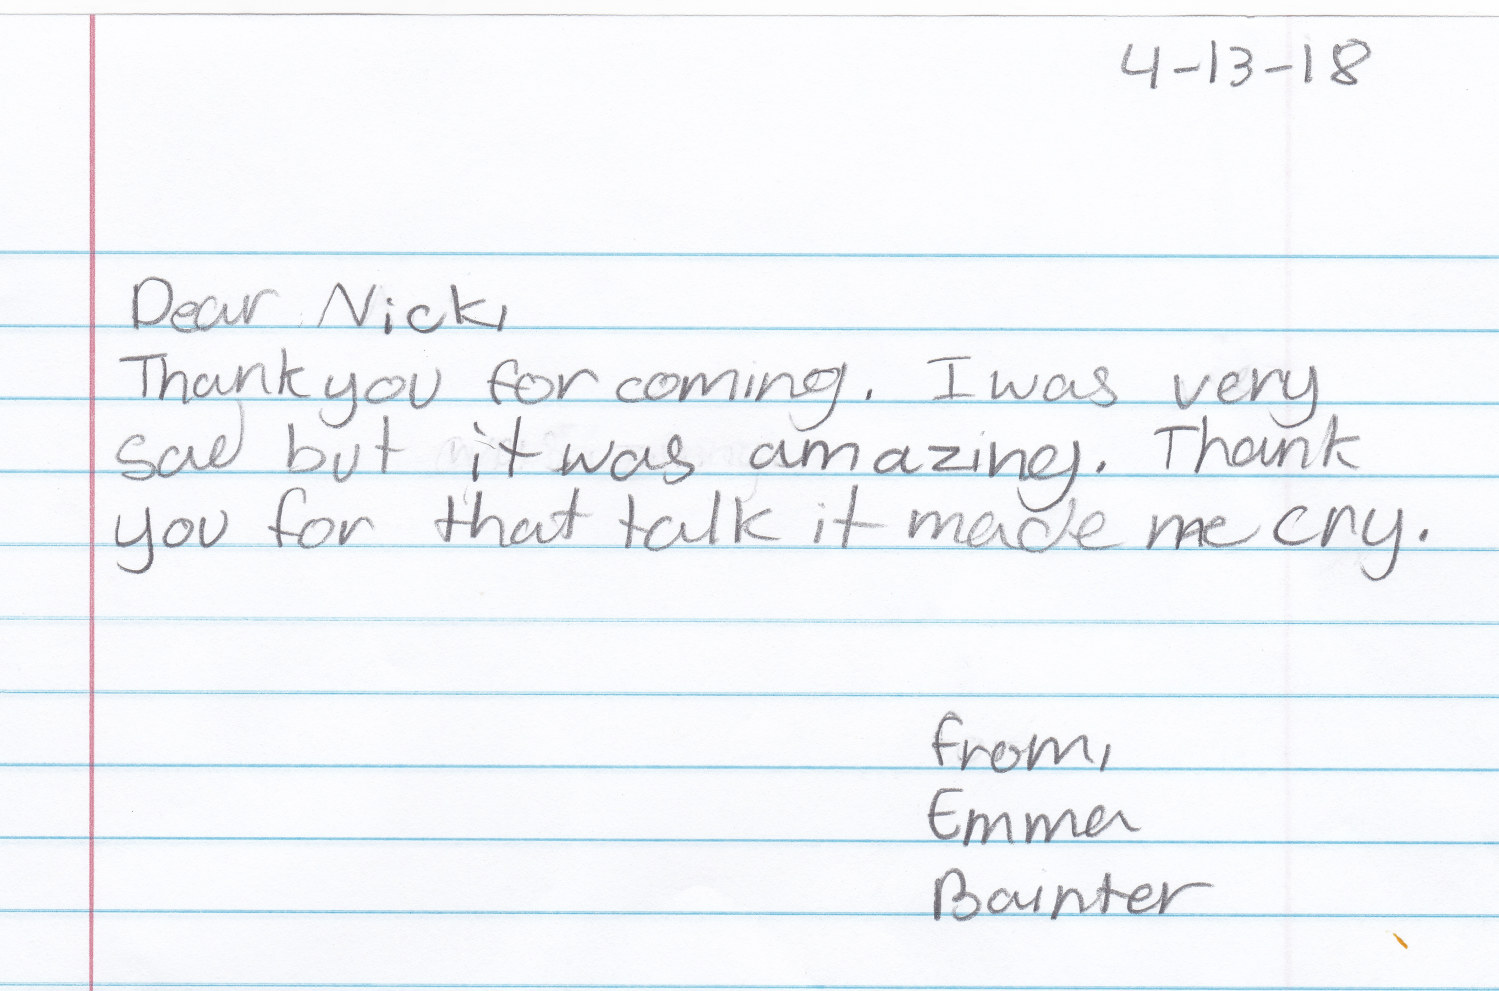 4-13-18
Dear Nick,
Thank you for coming. I was very
sad but it was amazing. Thank
you for that talk it made me cry.
from,
Emma
Bainter